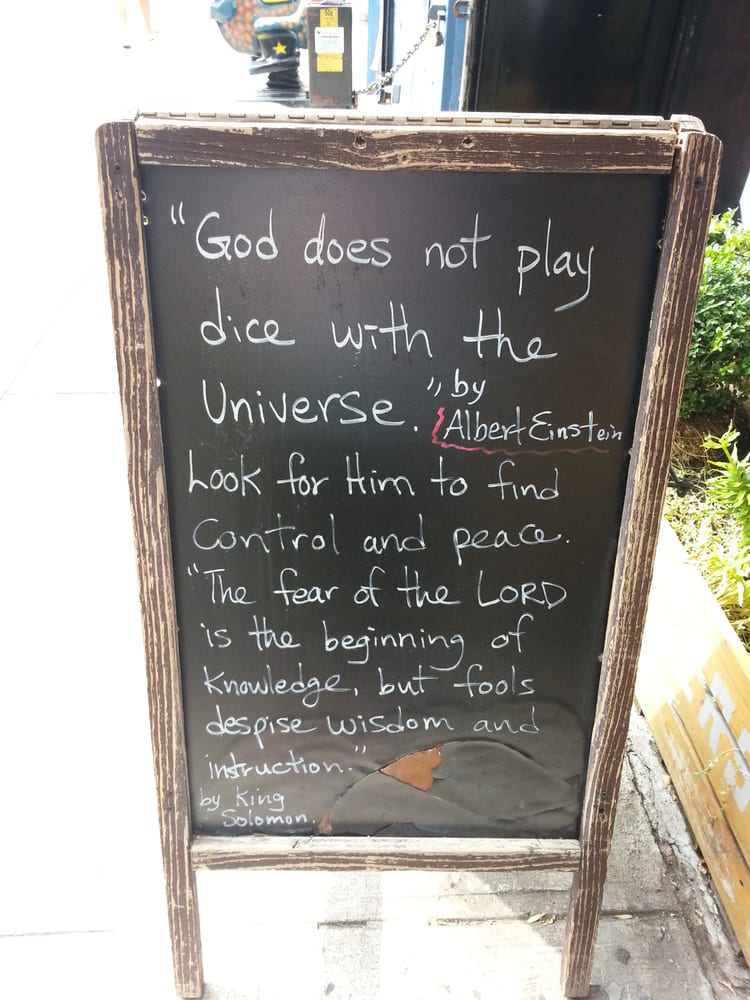 "God does not play
dice with the
Universe." by
Albert Einstein
Look for Him to find
Control and peace.
"The fear of the LORD
is the beginning of
knowledge, but fools
despise wisdom and
instruction."
by King
Solomon.